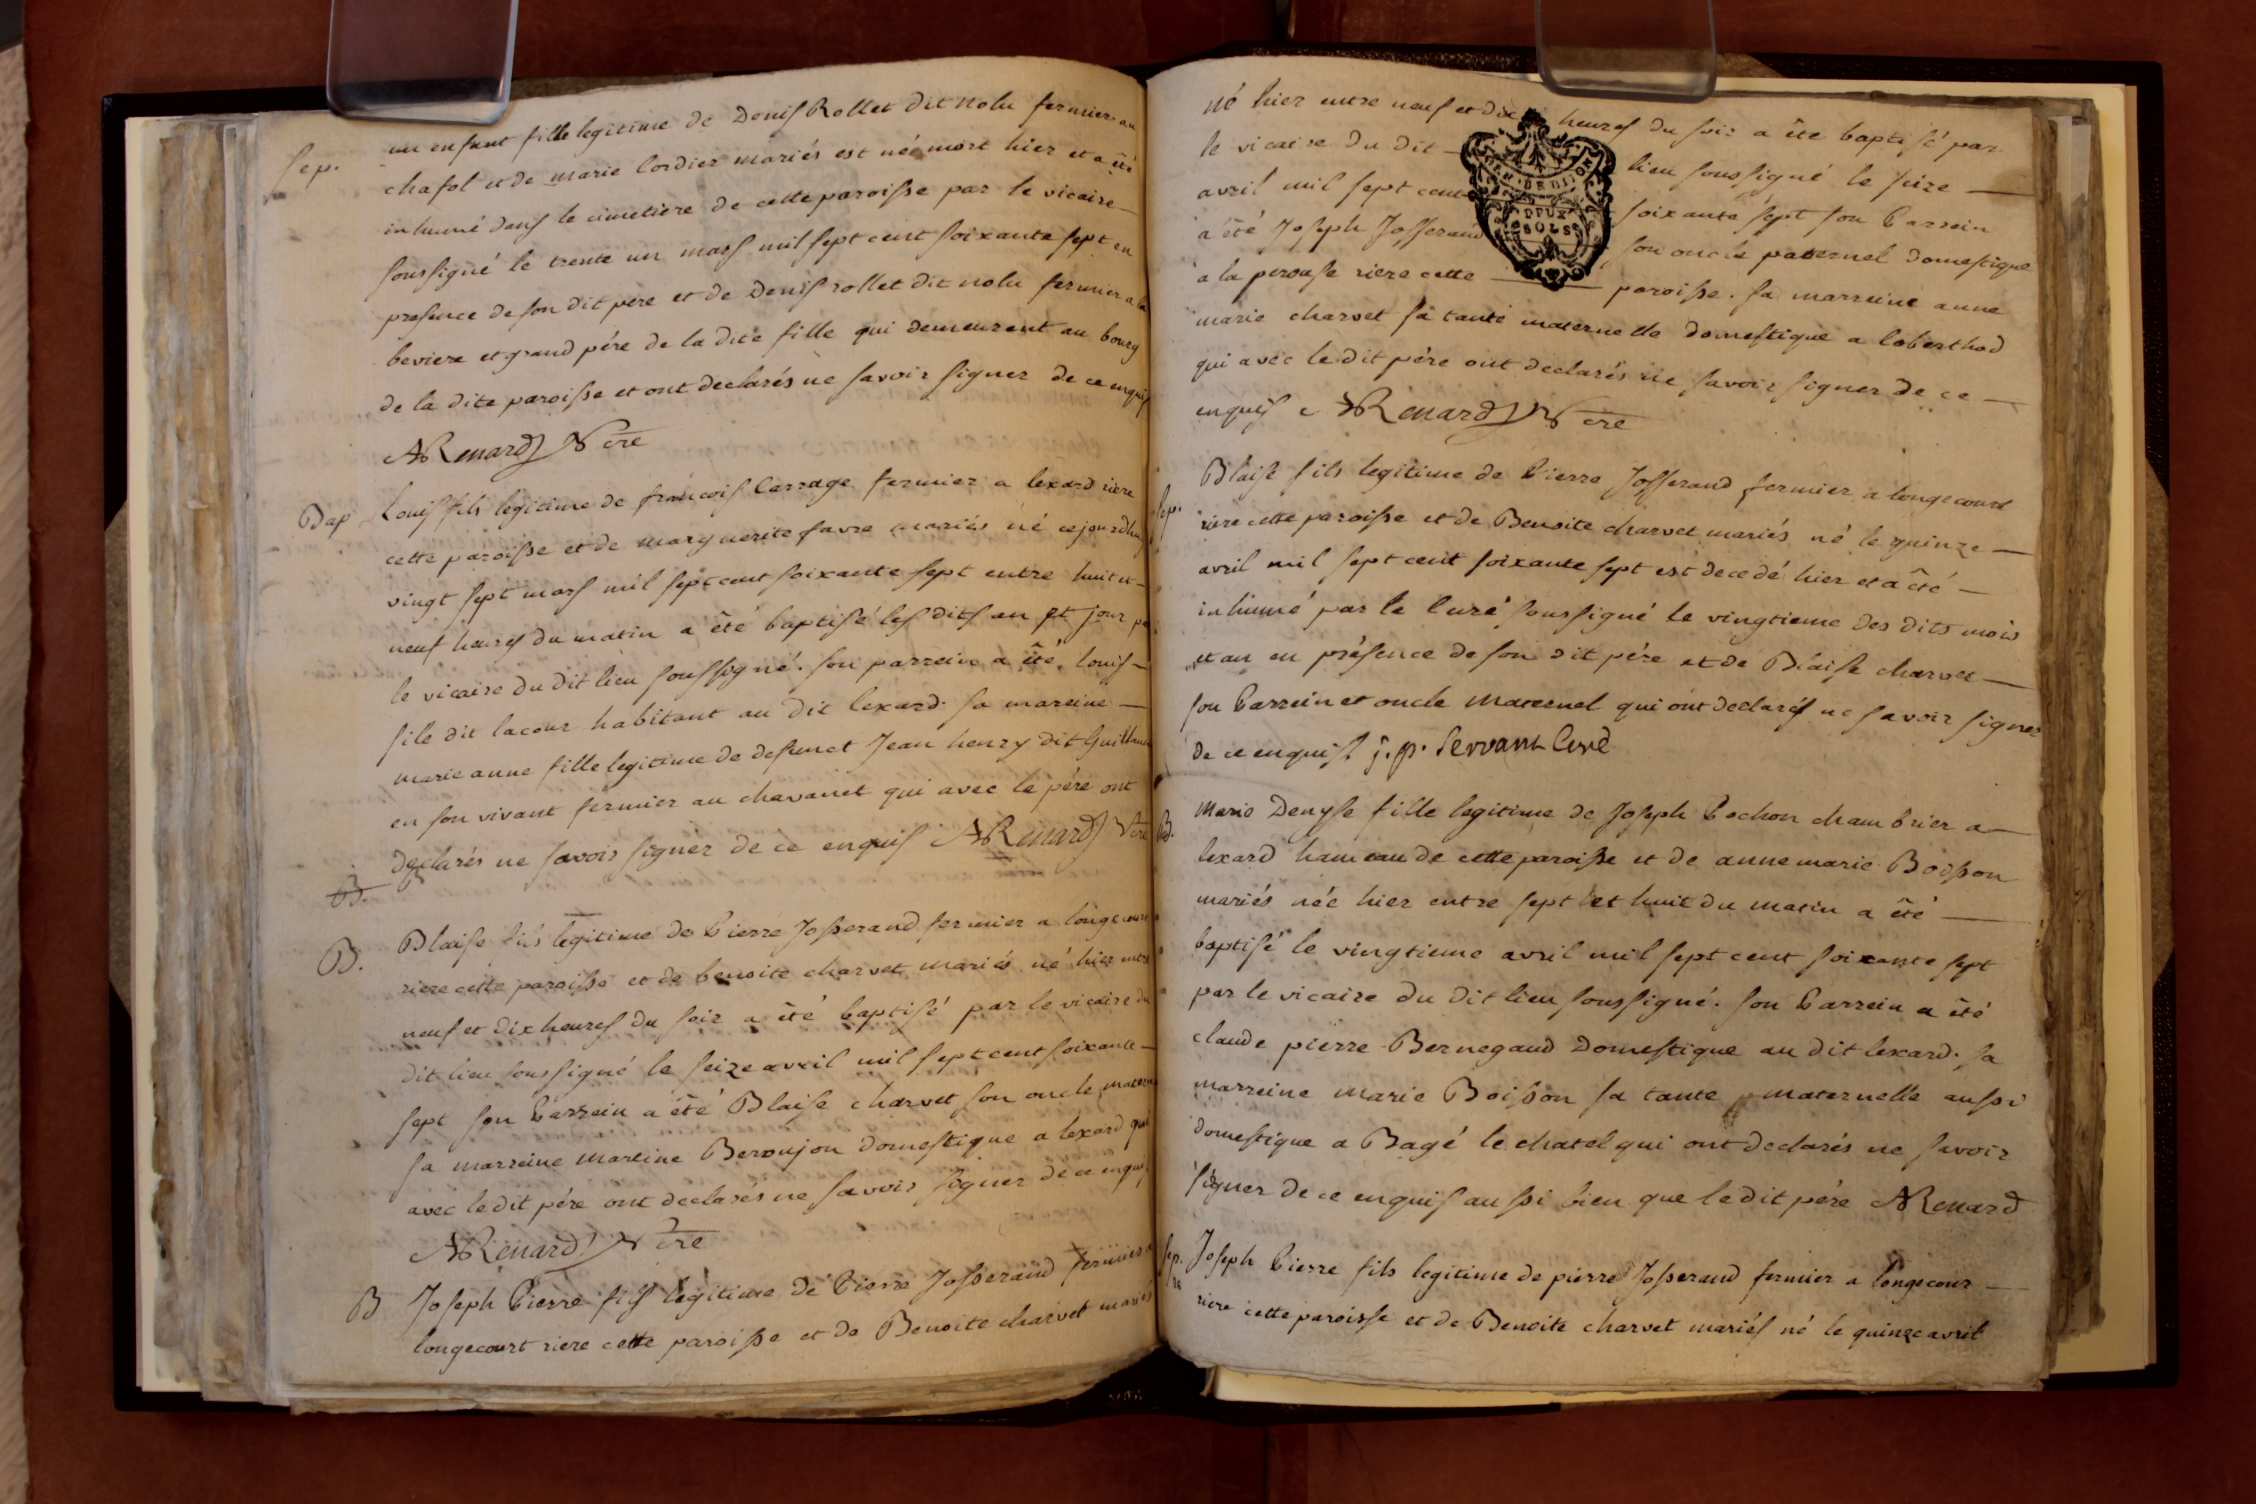 Sep.
un enfant fille legitime de Denis Rollet dit nolu fermier au
chafol et de marie Cordier mariés est née mort hier et a été
inhumé dans le cimetiere de cette paroisse par le vicaire
soussigné le trente un mars mil sept cent soixante sept en
presence de son dit pere et de Denis rollet dit nolu fermier a la
beviere et grand pére de la dite fille qui demeurent au bourg
de la dite paroisse et ont declarés ne savoir signer de ce enquis
ARenard Vcre
Bap
Louis fils legitime de francois Carrage fermier a lexard riere
cette paroisse et de marguerite favre mariés né cejourdhuy
vingt sept mars mil sept cent soixante sept entre huit et
neuf heures du matin a été baptisé les dits an et jour par
le vicaire du dit lieu soussigné. son parrein a été louis
file dit lacour habitant au dit lexard. sa mareine
marie anne fille legitime de defunct Jean henry dit Guillaume
en son vivant fermier au chavanet qui avec le pére ont
declarés ne savoir signer de ce enquis ARenard Vcre
B.
B.
Blaise fils legitime de Pierre Josserand fermier a longecourt
riere cette paroisse et de benoite charvet mariés né hier entre
neuf et dix heures du soir a été baptisé par le vicaire du
dit lieu soussigné le seize avril mil sept cent soixante
sept son Parrein a été Blaise charvet son oncle maternel
sa marreine martine Beroujon domestique a lexard qui
avec le dit pére ont declarés ne savoir signer de ce enquis
ARenard Vcre
B
Joseph Pierre fils legitime de Pierre Josserand fermier a
longecourt riere cette paroisse et de Benoite charvet mariés
né hier entre neuf et dix heures du soir a été baptisé par
le vicaire du dit lieu soussigné le seize
avril mil sept cent soixante sept son Parrein
a été Joseph Josserand son oncle paternel domestique
a la perouse riere cette paroisse. sa marreine anne
marie charvet sa tante maternelle domestique a loberthod
qui avec le dit pére ont declarés ne savoir signer de ce
enquis ARenard Vcre
GEN. DE DIJON
DEUX
SOLS
Sep.
Blaise fils legitime de Pierre Josserand fermier a longecourt
riere cette paroisse et de Benoite charvet mariés né le quinze
avril mil sept cent soixante sept est decedé hier et a été
inhumé par le Curé soussigné le vingtieme des dits mois
et an en présence de son dit pére et de Blaise charvet
son Parrein et oncle maternel qui ont declarés ne savoir signer
de ce enquis. j. p. Servant Curé
B.
Marie Denyse fille legitime de Joseph Pochon chambrier a
lexard hameau de cette paroisse et de anne marie Boisson
mariés née hier entre sept et huit du matin a été
baptisé le vingtieme avril mil sept cent soixante sept
par le vicaire du dit lieu soussigné. son Parrein a été
claude pierre Bernegaud domestique au dit lexard. sa
marreine marie Boisson sa tante maternelle aussi
domestique a Bagé le chatel qui ont declarés ne savoir
signer de ce enquis aussi bien que le dit pére ARenard
Sep. re
Joseph Pierre fils legitime de pierre Josserand fermier a longecour
riere cette paroisse et de Benoite charvet mariés né le quinze avril